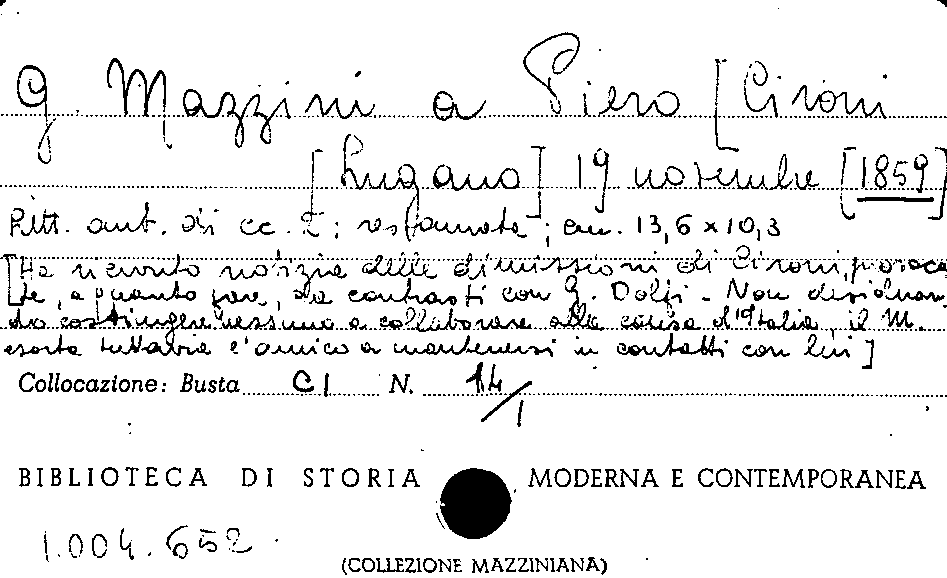 G. Mazzini a Piero [Cironi
[Lugano] 19 novembre [1859]
Litt. aut. di cc. 2; ; cm. 13,6 x 10,3
[Ha ricevuto notizia delle dimissioni di Cironi, provoca
te, a quanto pare, da contrasti con G. Dolfi. Non desideran
do costringere nessuno a collaborare alla causa d'Italia, il M.
esorta tuttavia l'amico a mantenersi in contatti con lui]
Collocazione: Busta C I N. 14/1
BIBLIOTECA DI STORIA MODERNA E CONTEMPORANEA
1.004.652
(COLLEZIONE MAZZINIANA)